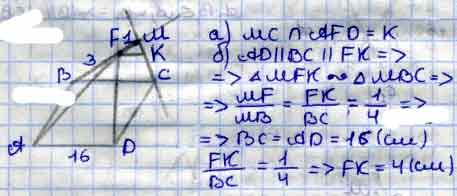 F 1 M
K
3
B
C
A
16
D
а) MC ∩ AFD = K
б) AD || BC || FK =>
=> △MFK ∾ △MBC =>
=> MF/MB = FK/BC = 1/4 =>
=> BC = AD = 16 (см)
FK/BC = 1/4 => FK = 4 (см)